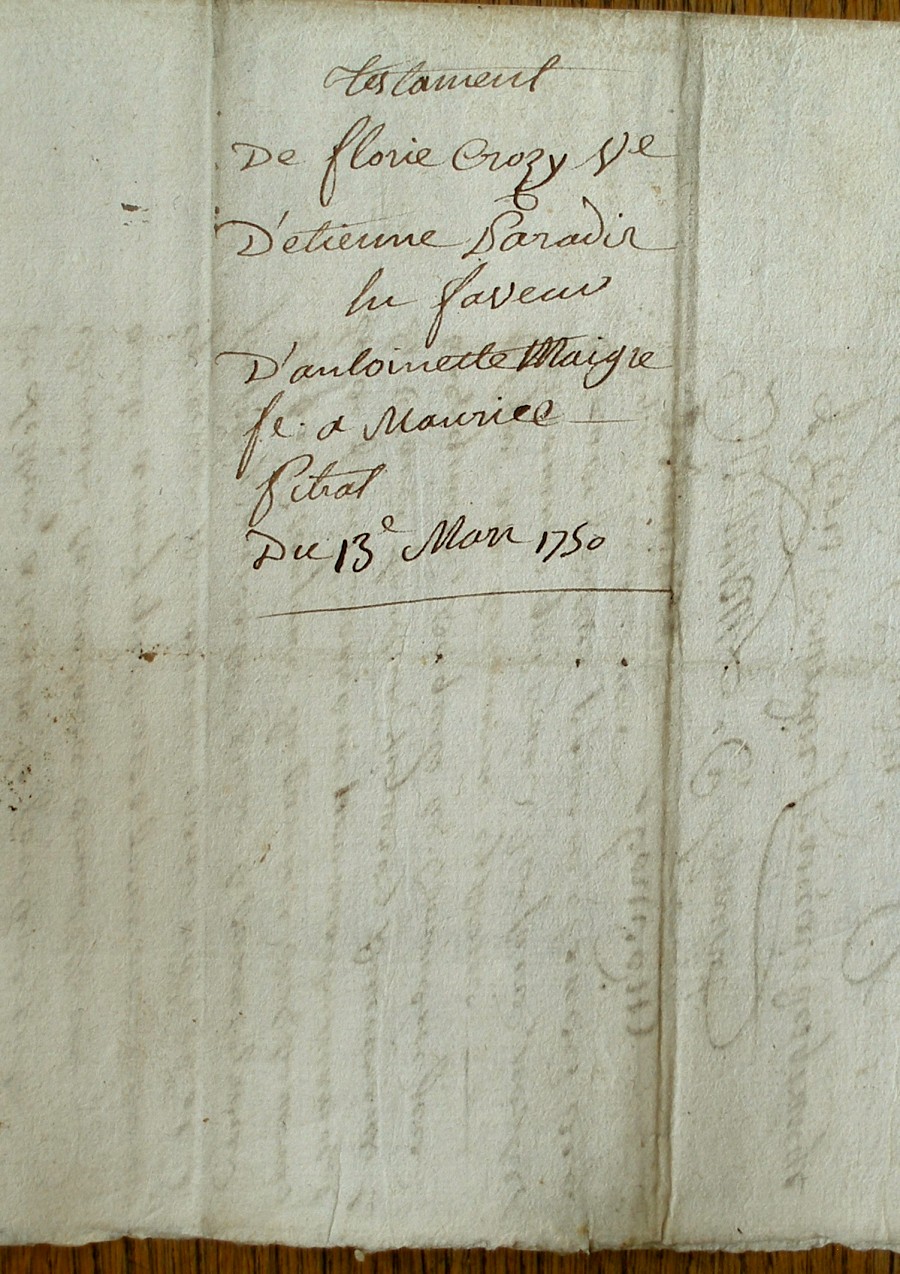 testament
De florie Crozy Ve
D'etienne Paradis
En faveur
D'antoinette Maigre
fe. a Maurice
Pitrat
Du 13e Mars 1750